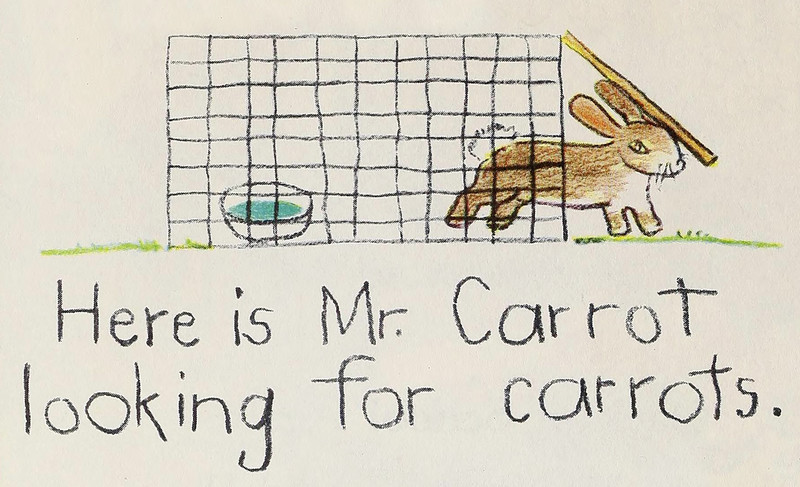 Here is Mr. Carrot
looking for carrots.